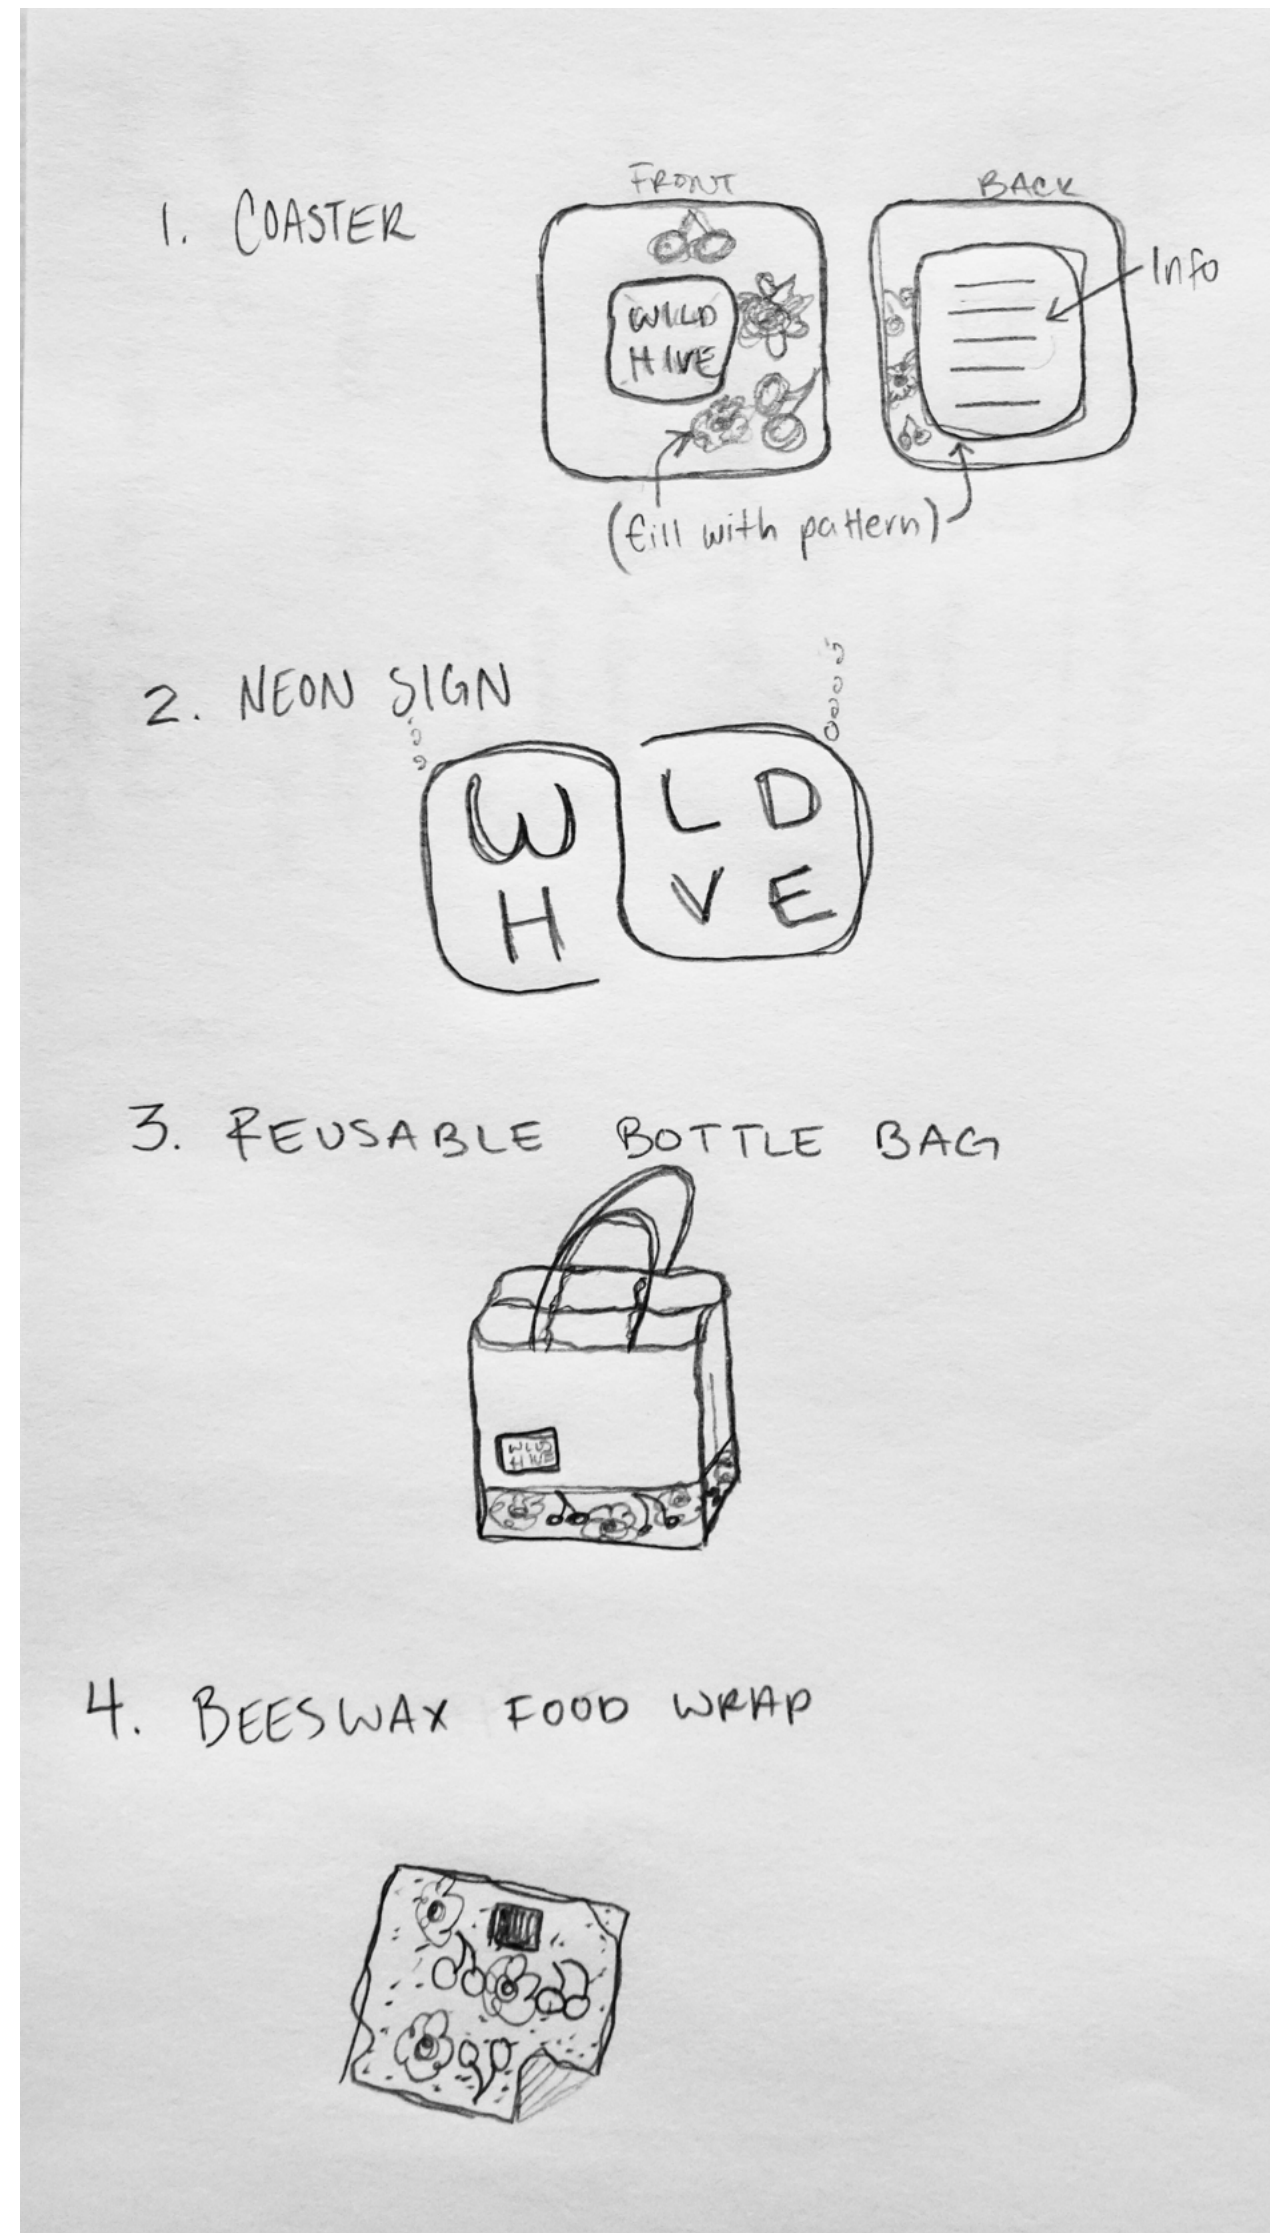 1. COASTER
FRONT
BACK
WILD
HIVE
Info
(fill with pattern)
2. NEON SIGN
W LD
H VE
3. REUSABLE BOTTLE BAG
WILD
HIVE
4. BEESWAX FOOD WRAP